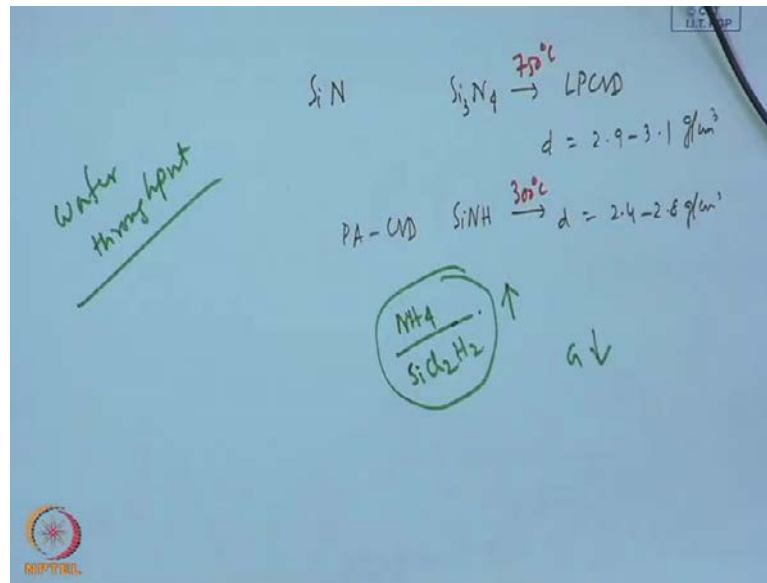 © CET
I.I.T. KGP
SiN Si₃N₄ 750°C → LPCVD
d = 2.9-3.1 g/cm³
wafer
throughput
PA-CVD SiNH 300°C → d = 2.4-2.8 g/cm³
NH4
SiCl₂H₂ ↑
G ↓
NPTEL